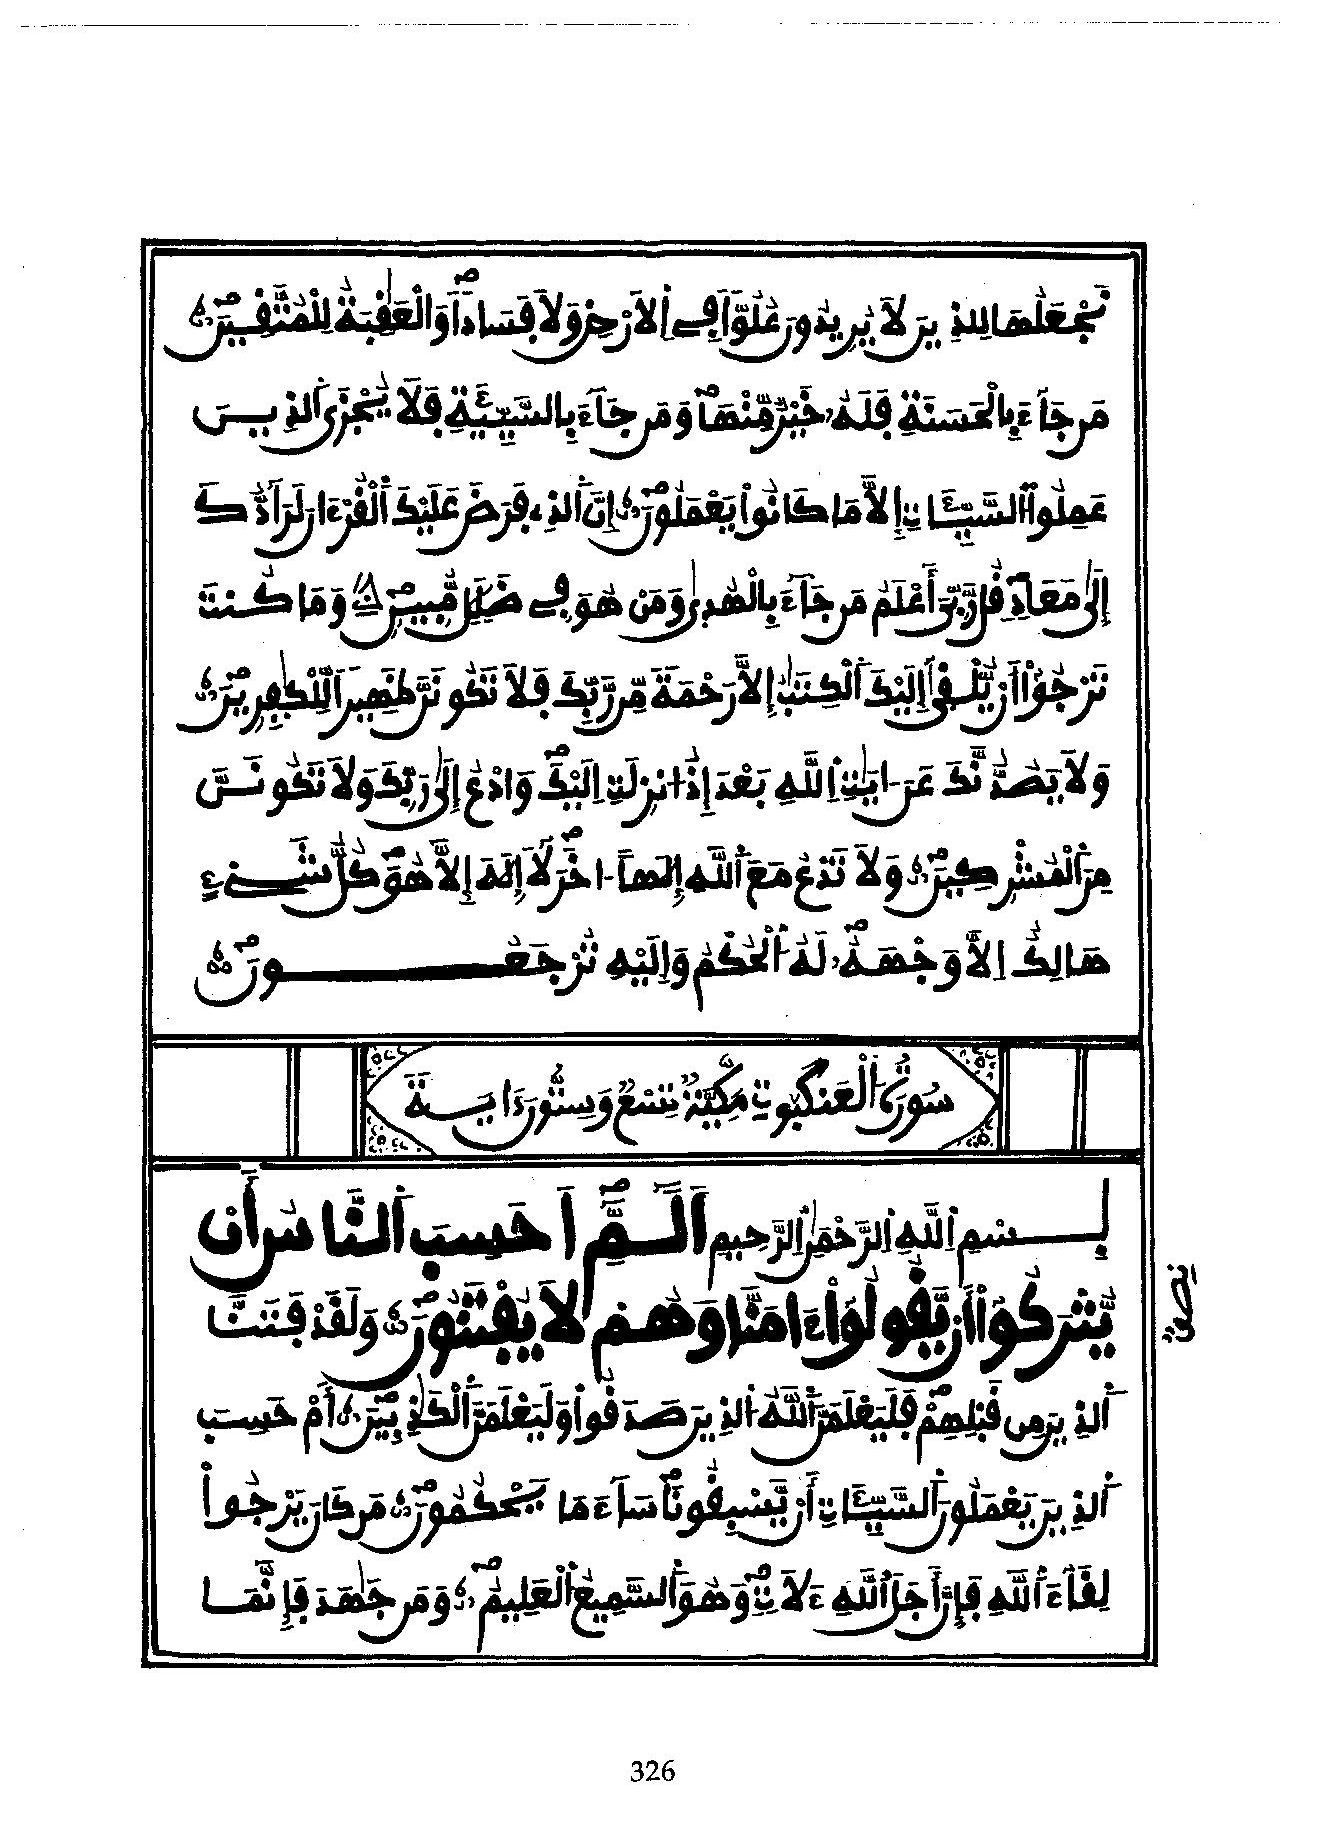 نَجْعَلُهَا لِلذِينَ لَا يُرِيدُونَ عُلُوّاٗ فِے اِ۬لَارْضِ وَلَا فَسَاداٗۖ وَالْعَٰقِبَةُ لِلْمُتَّقِينَۖ
مَن جَآءَ بِالْحَسَنَةِ فَلَهُۥ خَيْرٞ مِّنْهَاۖ وَمَن جَآءَ بِالسَّيِّئَةِ فَلَا يُجْزَي اَ۬لذِينَ
عَمِلُواْ اُ۬لسَّيِّـَٔاتِ إِلَّا مَا كَانُواْ يَعْمَلُونَۖ إِنَّ اَ۬لذِے فَرَضَ عَلَيْكَ اَ۬لْقُرْءَانَ لَرَآدُّكَ
إِلَىٰ مَعَادٖۖ قُل رَّبِّيَ أَعْلَمُ مَن جَآءَ بِالْهُد۪ىٰ وَمَنْ هُوَ فِے ضَلَٰلٖ مُّبِينٖۖ وَمَا كُنتَ
تَرْجُوٓاْ أَنْ يُّلْق۪ىٰٓ إِلَيْكَ اَ۬لْكِتَٰبُ إِلَّا رَحْمَةٗ مِّن رَّبِّكَ فَلَا تَكُونَنَّ ظَهِيراٗ لِّلْكٰ۪فِرِينَۖ
وَلَا يَصُدُّنَّكَ عَنَ اٰيَٰتِ اِ۬للَّهِ بَعْدَ إِذُ ا۟نزِلَتِ اِلَيْكَۖ وَادْعُ إِلَىٰ رَبِّكَ وَلَا تَكُونَنَّ
مِنَ اَ۬لْمُشْرِكِينَۖ وَلَا تَدْعُ مَعَ اَ۬للَّهِ إِلَٰهاً اٰخَرَۖ لَآ إِلَٰهَ إِلَّا هُوَۖ كُلُّ شَےْءٍ
هَالِكٌ اِلَّا وَجْهَهُۥۖ لَهُ اُ۬لْحُكْمُ وَإِلَيْهِ تُرْجَعُونَۖ
سُورَةُ اُ۬لْعَنكَبُوتِ مَكِّيَّةٞ تِسْعٞ وَسِتُّونَ ءَايَةٗ
بِسْمِ اِ۬للَّهِ اِ۬لرَّحْمَٰنِ اِ۬لرَّحِيمِ أَلَٓمِّٓۖ أَحَسِبَ اَ۬لنَّاسُ أَنْ
يُّتْرَكُوٓاْ أَنْ يَّقُولُوٓاْ ءَامَنَّا وَهُمْ لَا يُفْتَنُونَۖ وَلَقَدْ فَتَنَّا
اَ۬لذِينَ مِن قَبْلِهِمْۖ فَلَيَعْلَمَنَّ اَ۬للَّهُ اُ۬لذِينَ صَدَقُواْ وَلَيَعْلَمَنَّ اَ۬لْكَٰذِبِينَۖ أَمْ حَسِبَ
اَ۬لذِينَ يَعْمَلُونَ اَ۬لسَّيِّـَٔاتِ أَنْ يَّسْبِقُونَاۖ سَآءَ مَا يَحْكُمُونَۖ مَن كَانَ يَرْجُواْ
لِقَآءَ اَ۬للَّهِ فَإِنَّ أَجَلَ اَ۬للَّهِ ءَلَاتٖۖ وَهُوَ اَ۬لسَّمِيعُ اُ۬لْعَلِيمُۖ وَمَن جَٰهَدَ فَإِنَّمَا
نصف
326